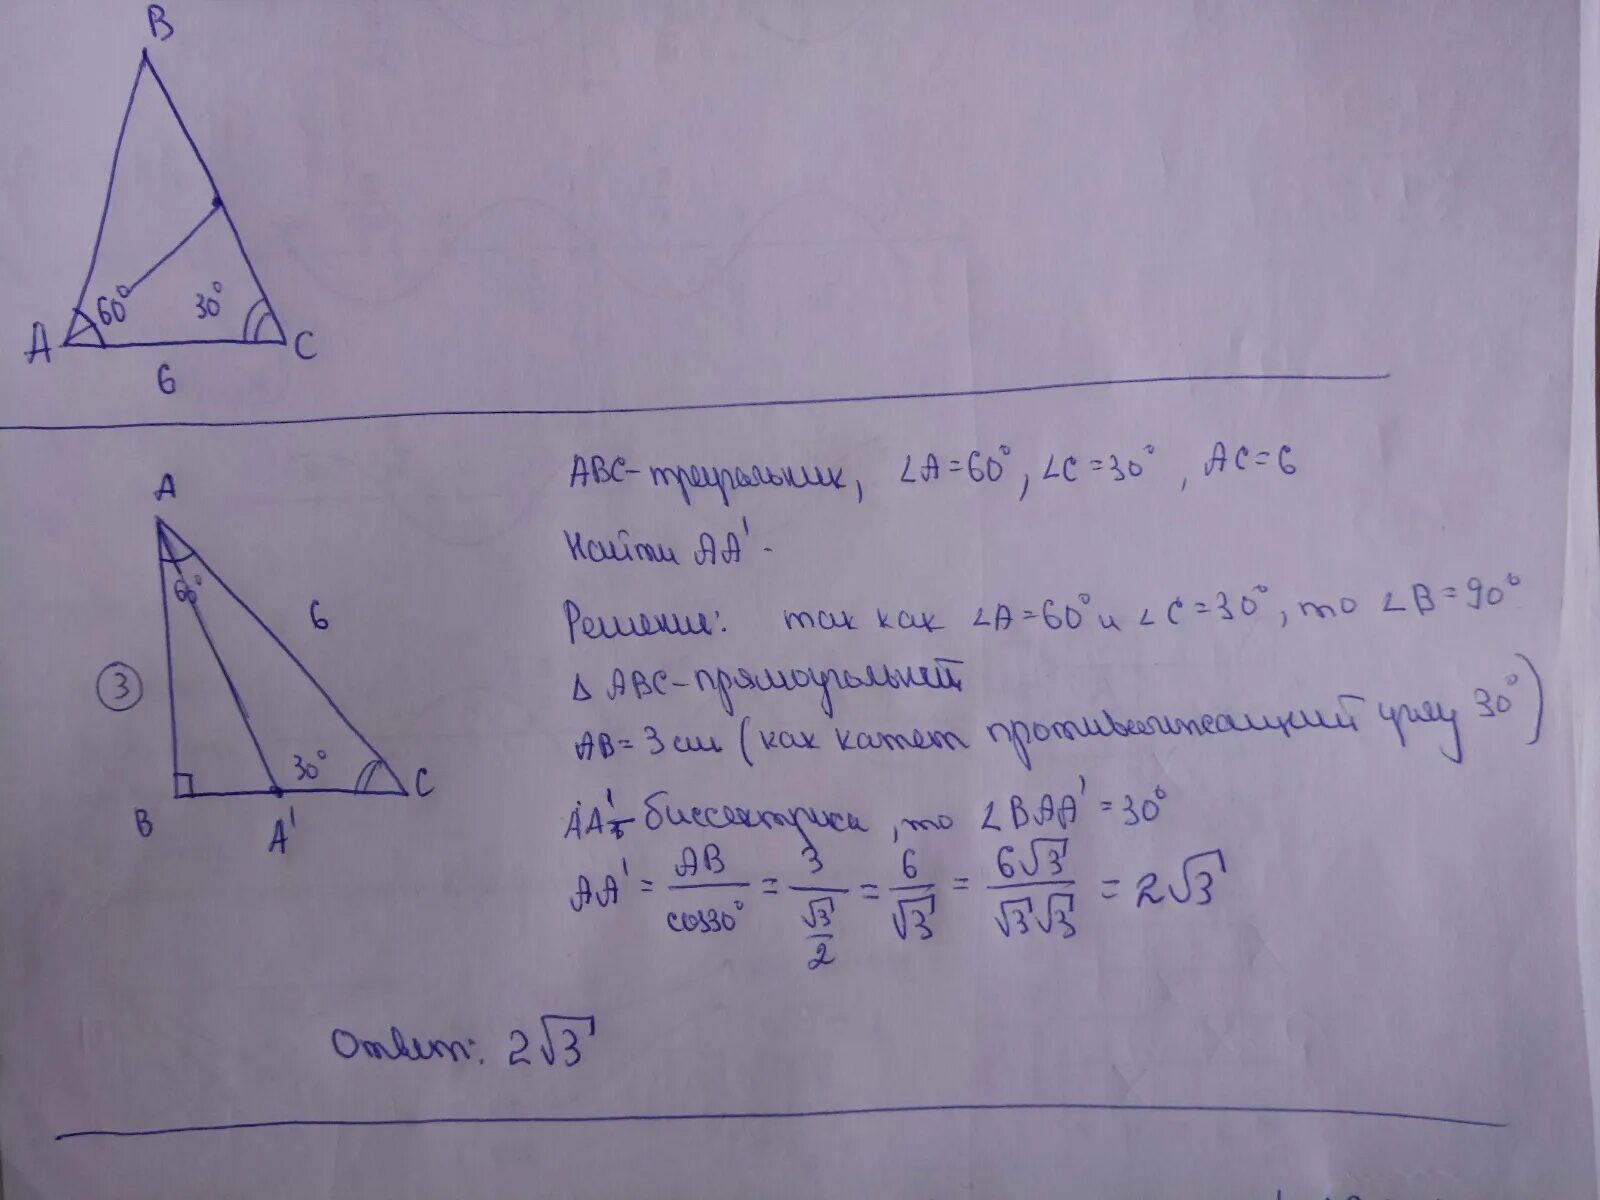 B
60° 30°
A C
6
ABC-треугольник, ∠A=60°, ∠C=30°, AC=6
Найти AA'.
Решение: так как ∠A=60° и ∠C=30°, то ∠B=90°
Δ ABC-прямоугольный
AB=3см (как катет противолежащий углу 30°)
AA'- биссектриса, то ∠BAA'=30°
AA' = AB/cos30° = 3/(√3/2) = 6/√3 = 6√3/√3√3 = 2√3
A
60°
6
3
30°
B A' C
Ответ: 2√3